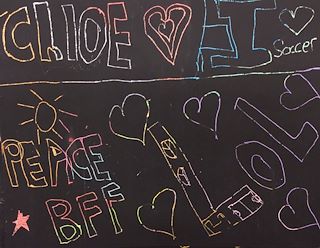 CHLOE I
Soccer
PEACE
BFF
LOL